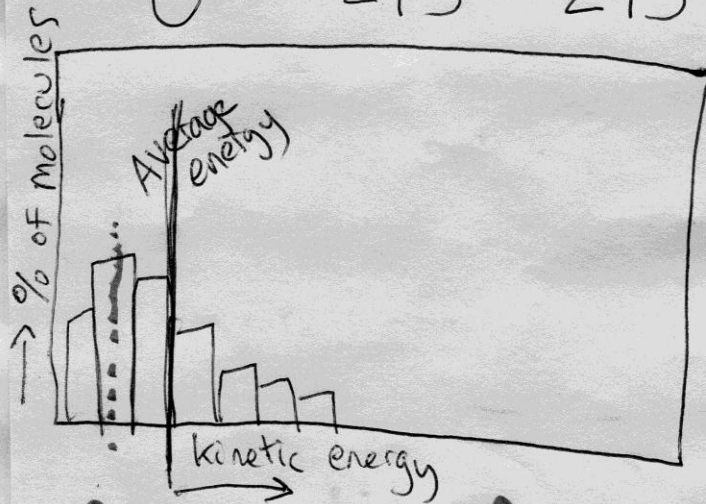 % of molecules
Average
energy
kinetic energy